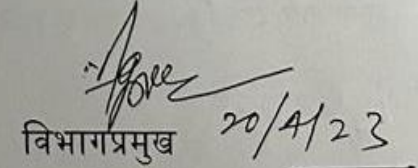 विभागप्रमुख 20/4/23